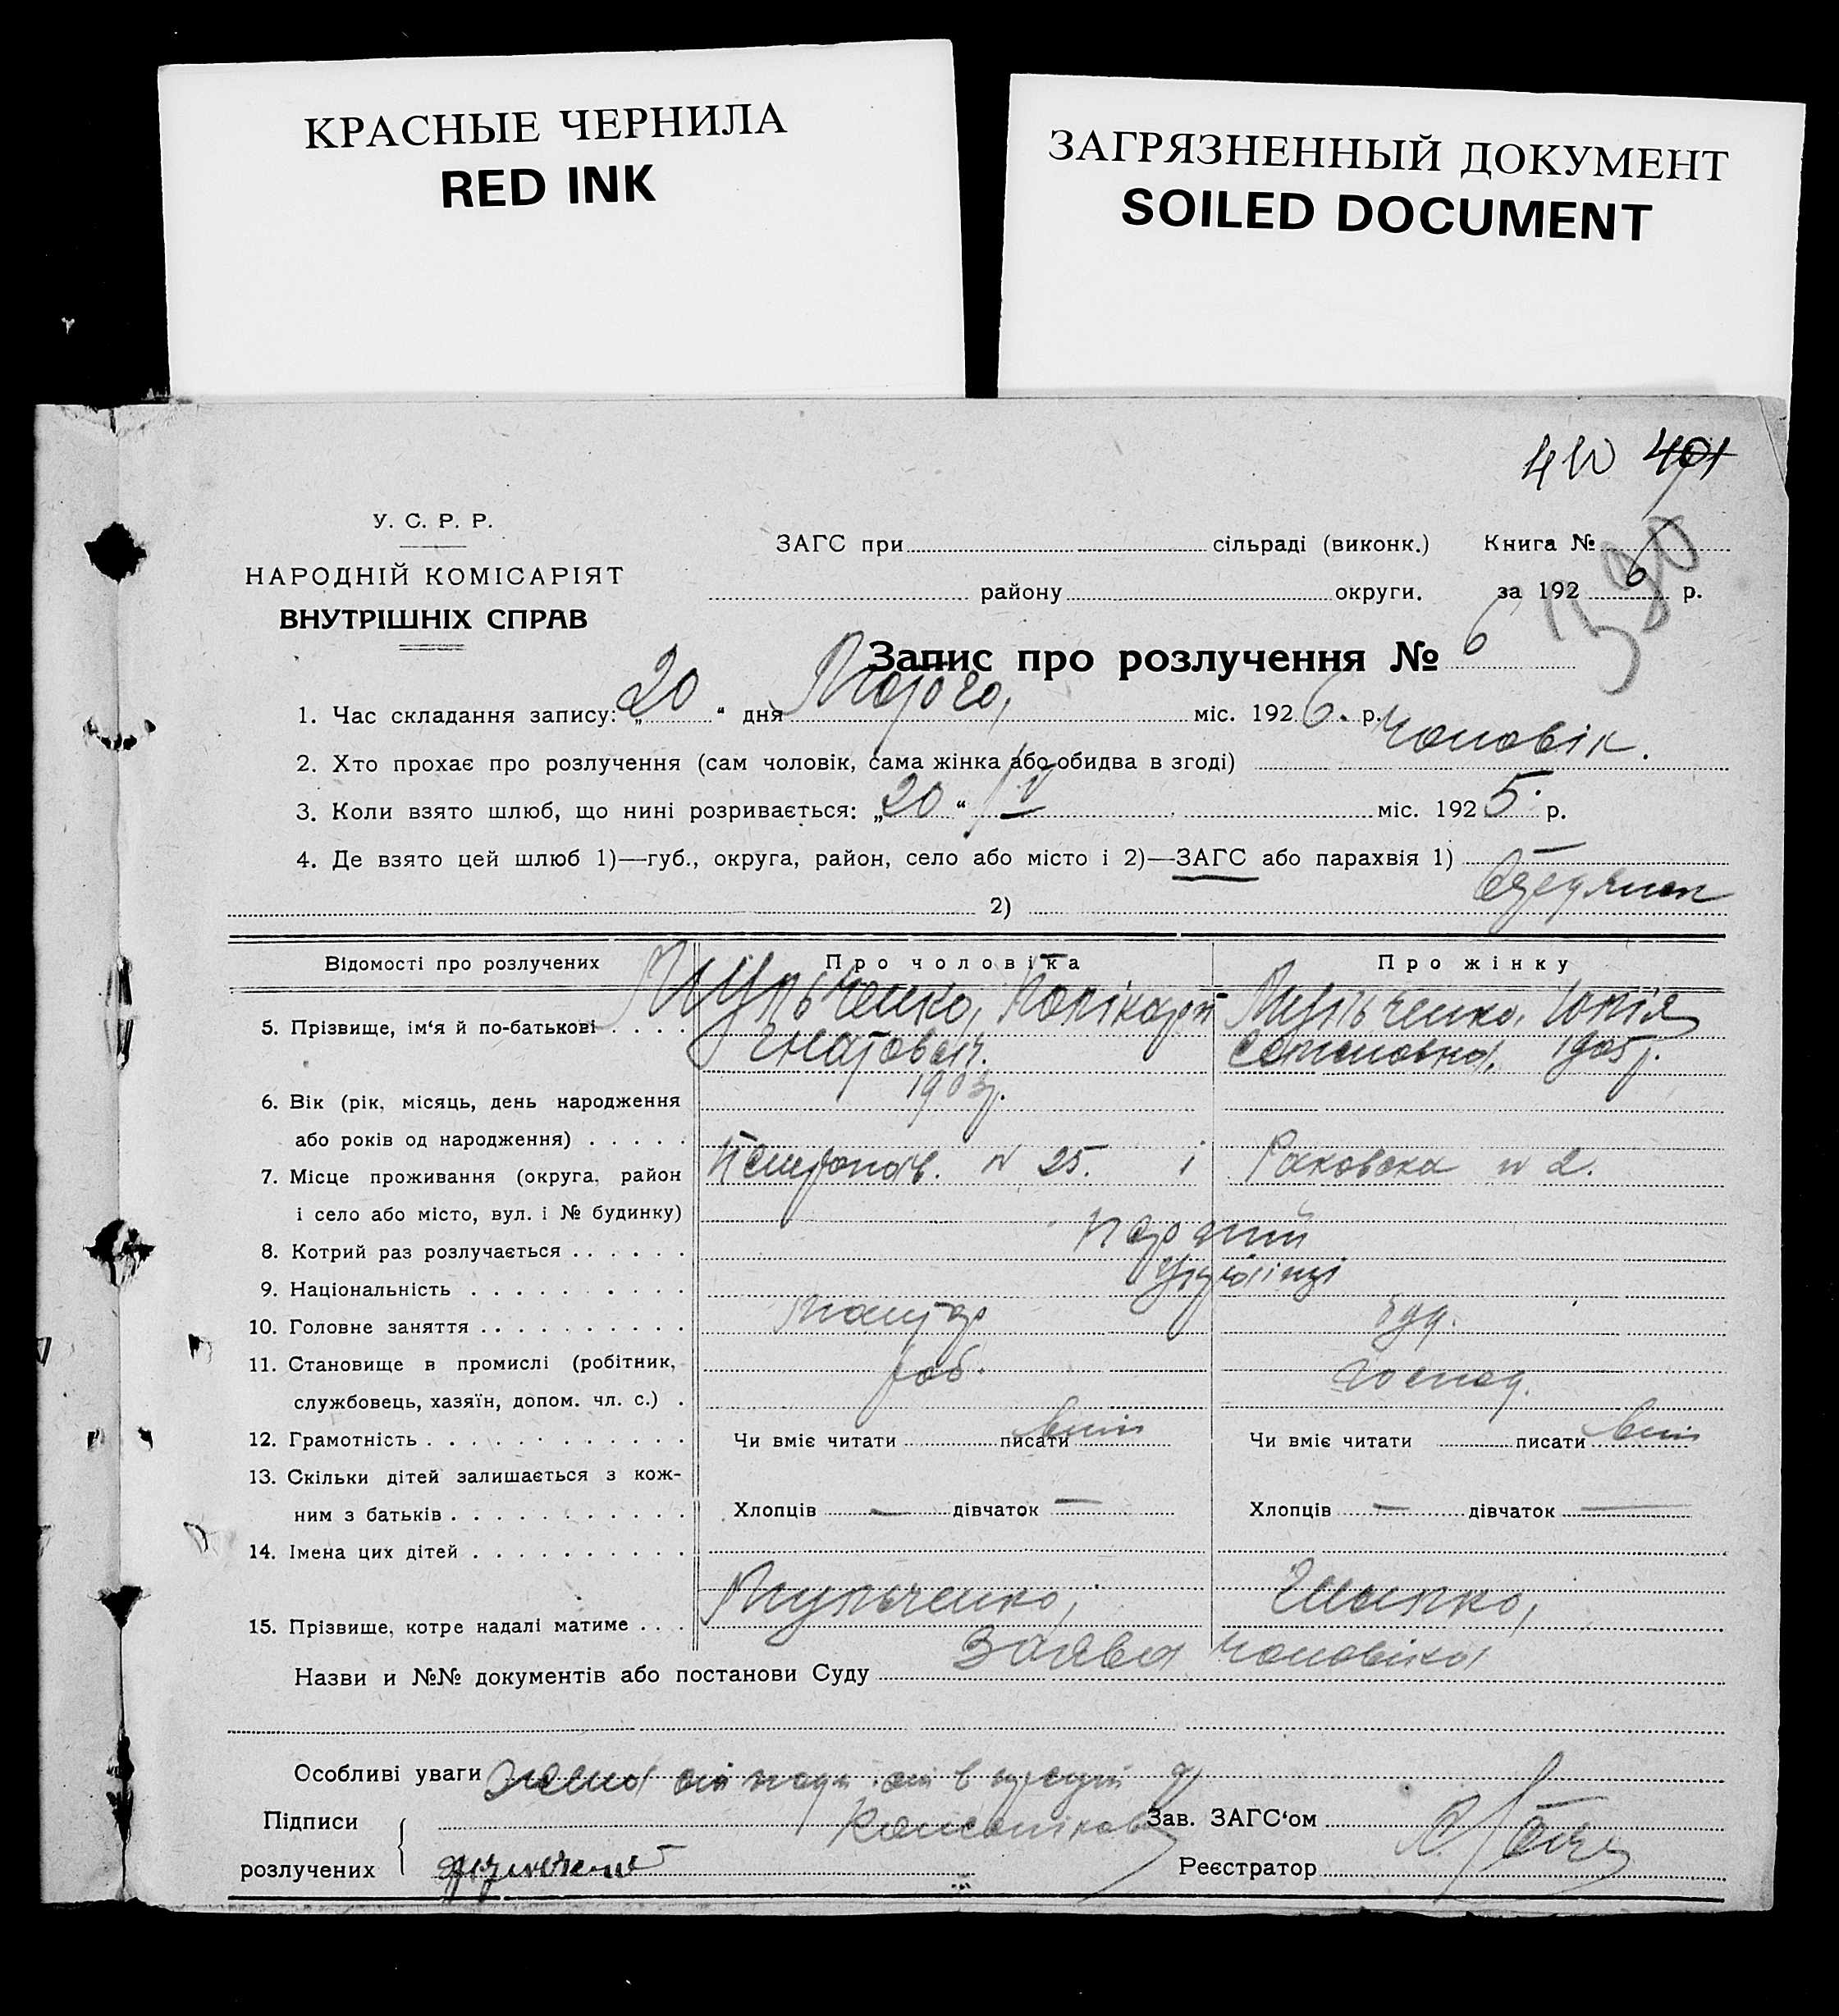 КРАСНЫЕ ЧЕРНИЛА
RED INK
ЗАГРЯЗНЕННЫЙ ДОКУМЕНТ
SOILED DOCUMENT
401
390
У. С. Р. Р.
НАРОДНІЙ КОМІСАРІЯТ
ВНУТРІШНІХ СПРАВ
ЗАГС при сільраді (виконк.) Книга №
району округи. за 192 6 р.
Запис про розлучення № 6
1. Час складання запису: „ 20 “ дня Лютого, міс. 192 6. р.
2. Хто прохає про розлучення (сам чоловік, сама жінка або обидва в згоді) Чоловік.
3. Коли взято шлюб, що нині розривається: „ 20 “ міс. 192 5. р.
4. Де взято цей шлюб 1)—губ., округа, район, село або місто і 2)—ЗАГС або парахвія 1)
2)
Відомості про розлучених Про чоловіка Про жінку
5. Прізвище, ім‘я й по-батькові . . . . Мульченко, Полікарп Мульченко, Юлія
Гнатович. 1905 р.
1903 р.
6. Вік (рік, місяць, день народження
або років од народження) . . . . .
7. Місце проживання (округа, район № 25. і Раковська № 2.
і село або місто, вул. і № будинку)
8. Котрий раз розлучається . . . . . . Перший
9. Національність . . . . . . . . . . Українці
10. Головне заняття . . . . . . . . . .
11. Становище в промислі (робітник, роб.
службовець, хазяїн, допом. чл. с.) . господ.
12. Грамотність . . . . . . . . . . . . Чи вміє читати писати вмів Чи вміє читати писати вмів
13. Скільки дітей залишається з кож-
ним з батьків . . . . . . . . . . . Хлопців — дівчаток — Хлопців — дівчаток —
14. Імена цих дітей . . . . . . . . . .
15. Прізвище, котре надалі матиме . . . Мульченко,
Назви и №№ документів або постанови Суду Заява чоловіка
Особливі уваги
Підписи Зав. ЗАГС‘ом
розлучених Реєстратор